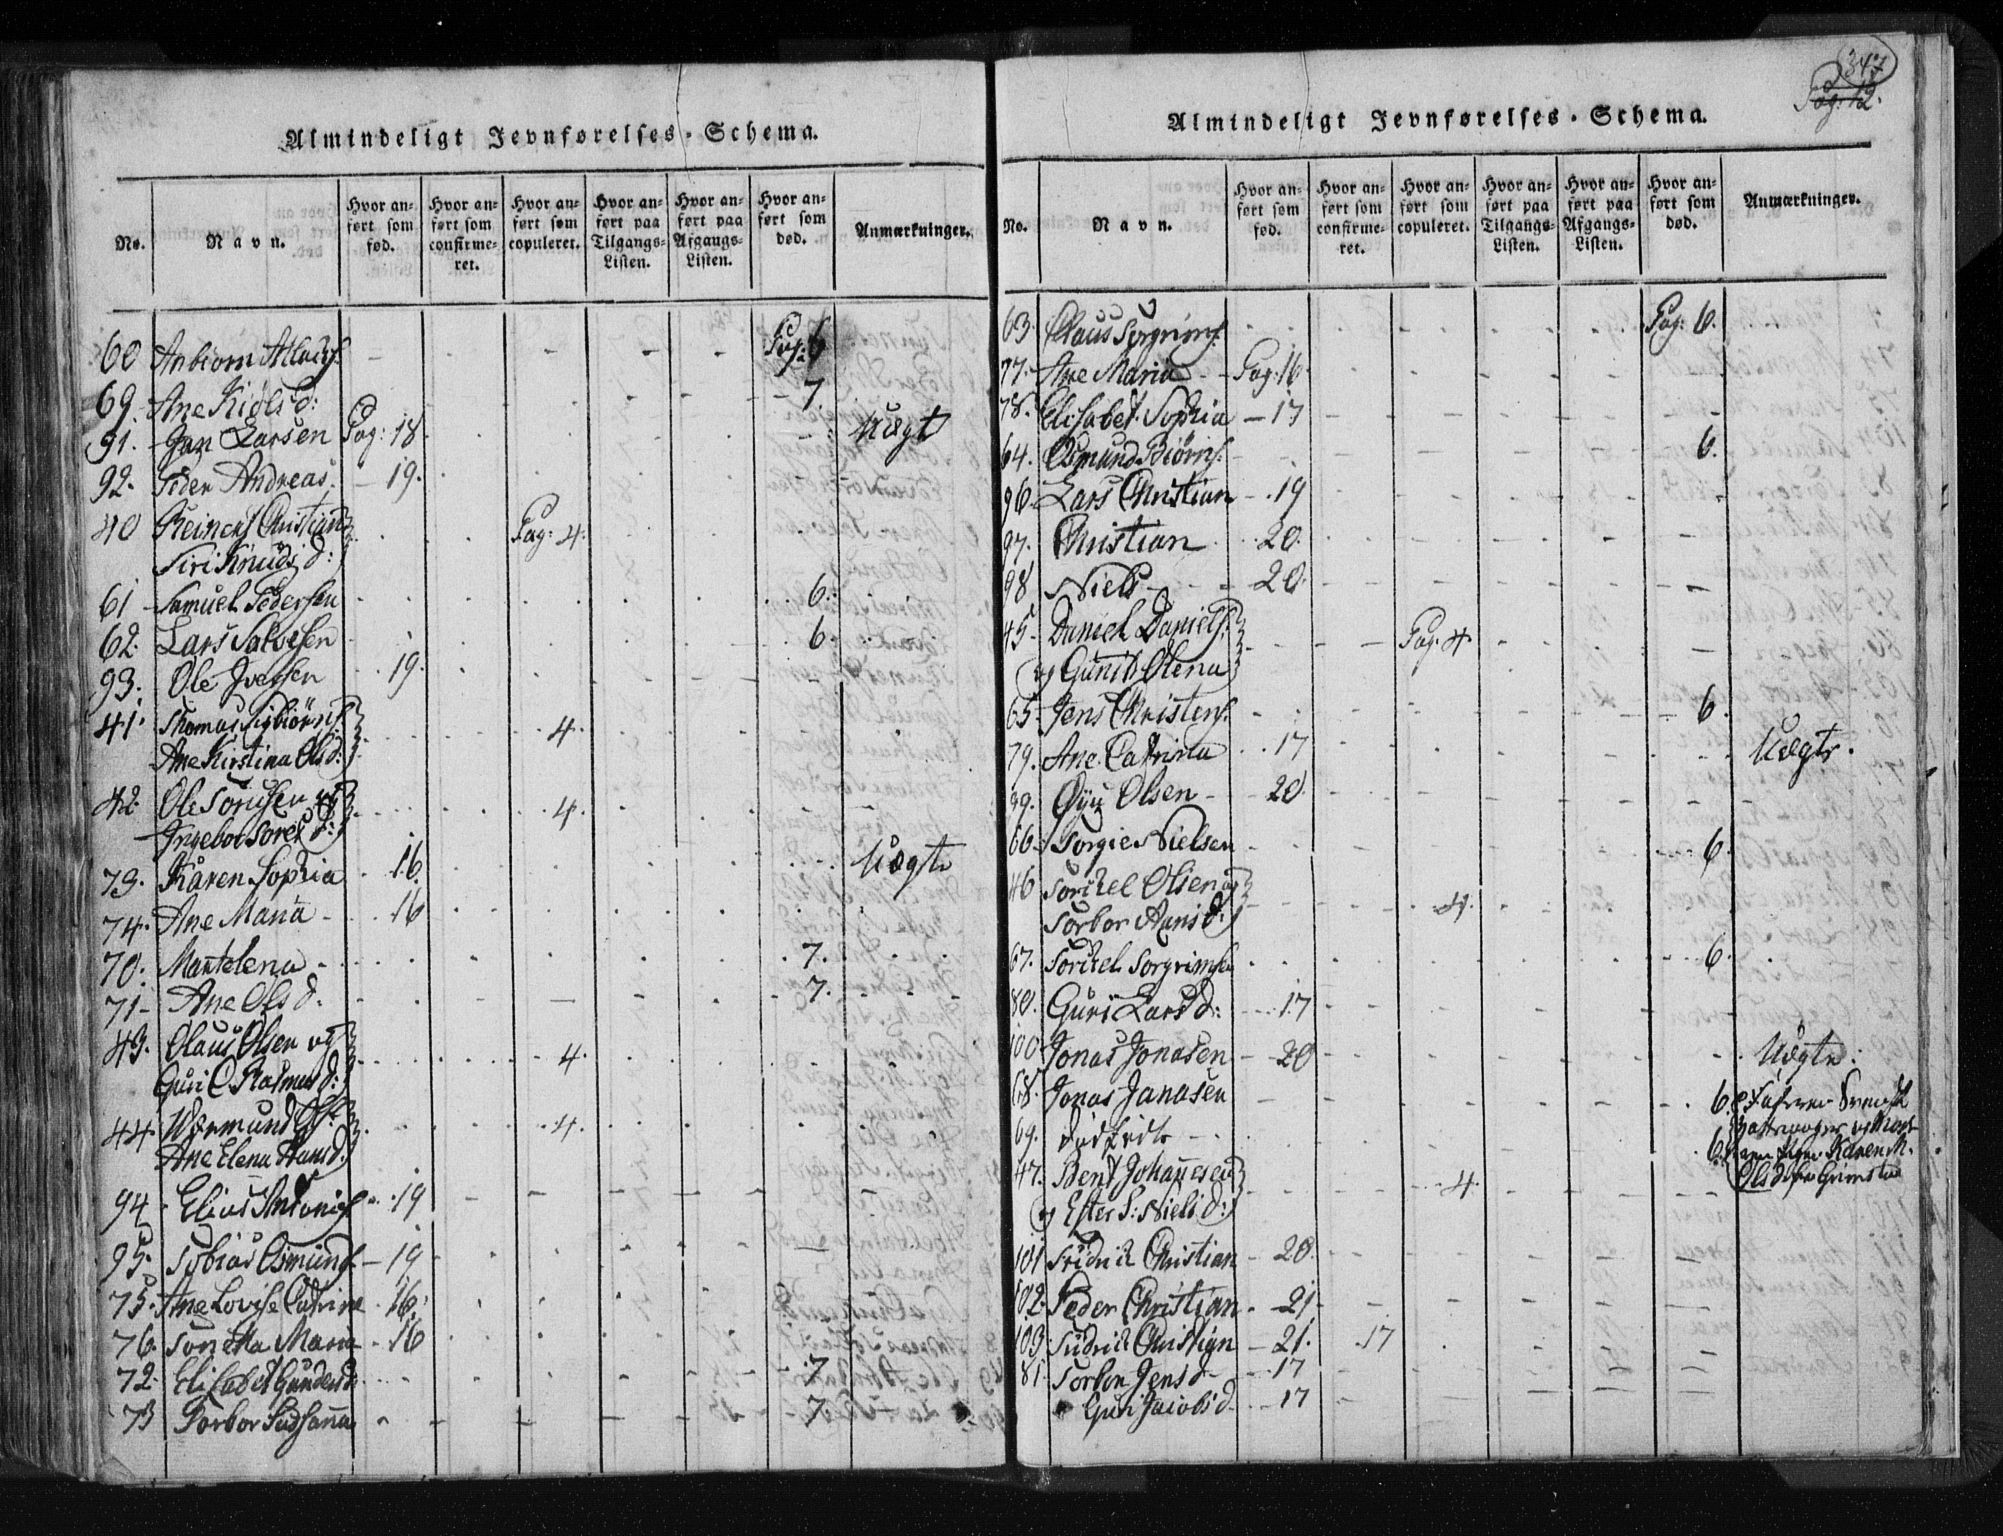 Almindeligt Jevnførelses-Schema.
No.
Navn.
Hvor anført som fød.
Hvor anført som confirmeret.
Hvor anført som copuleret.
Hvor anført paa Tilgangs-Listen.
Hvor anført paa Afgangs-Listen.
Hvor anført som død.
Anmærkninger.
60 Anbiorn Pag: 6
69. Ane Kiöls d: 7
91. Jan Larsen Pag: 18 Uægt
92. Peder Andreas. 19.
40 Reinert Christian
Siri Knuds d: Pag: 4.
61 Samuel Pedersen 6.
62. Lars Salvesen 6.
93. Ole Iversen 19.
41. Thomas
Ane Kirstina Ols d: 4.
42. Ole og
Ingebor d: 4.
73. Karen Sophia 16 Uægte
74. Ane Maria 16
70. 7.
71 Ane Ols d. 7.
43. Olaus Olsen og
Guri C Rasmus d: 4
44.
Ane Elena Hans d. 4.
94 Elias 19
95. Tobias Osmunds 19
75. Ane Lovise Catrine 16.
76. Maria 16
72. Elisabet Gunders d 7
73 Torbor Susanna 7.
347
Pag: 12.
Almindeligt Jevnførelses-Schema.
No.
Navn.
Hvor anført som fød.
Hvor anført som confirmeret.
Hvor anført som copuleret.
Hvor anført paa Tilgangs-Listen.
Hvor anført paa Afgangs-Listen.
Hvor anført som død.
Anmærkninger.
63. Claus Torgrims. Pag: 6.
77. Ane Maria Pag: 16
78. Elisabet Sophia 17
64. Osmund Biörns. 6.
96. Lars Christian 19
97. Christian 20.
98 Niels 20.
45. Daniel Daniels.
og Gunild Olena Pag: 4
65. Jens Christens. 6
79. Ane Catrina 17 Uægte.
99. Olsen 20.
66. Torgie Nielsen 6
46 Torkel Olsen og
Torbor Hans d. 4.
67. Torkel Torgrimsen 6
80. Guri Lars d: 17
100. Jonas Jonasen 20 Uægte.
68. Jonas Janasen 6
69. 6
Karen M.
Grimstad
47. Bent Johannesen
og Ester S: Niels d: 4
101 Fridrick Christian 20.
102. Peder Christian. 21
103. Fridrick Christian 21. 17
81. Torbor Jens d 17
Guri Jacobs d 17